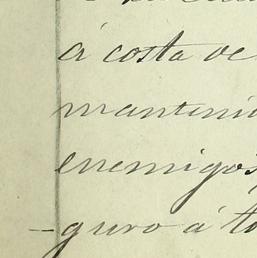 á costa de
manteni
enemigos,
-guro á to